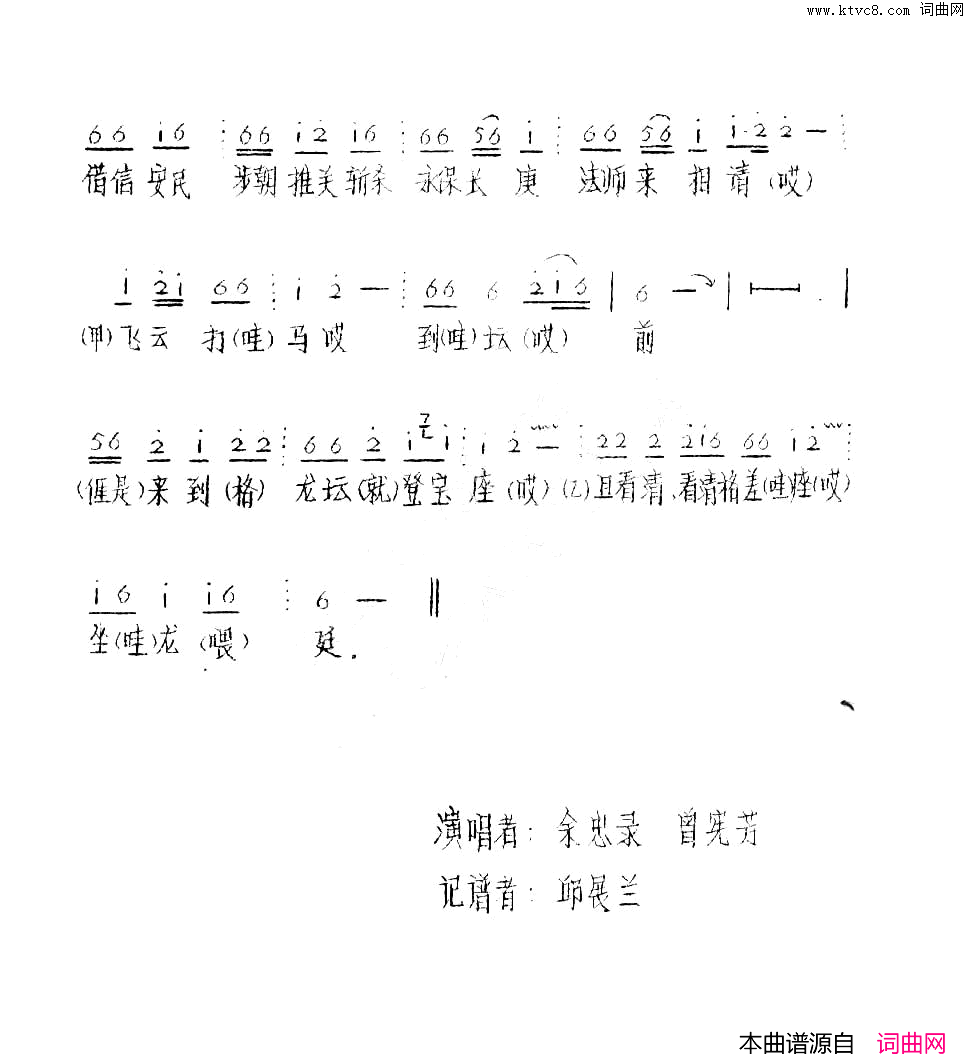 www.ktvc8.com 词曲网
6 6 i 6 6 6 i 2 i 6 6 6 5 6 i 6 6 5 6 i i·2 2 —
借信安民 涉朝推美斩杀 永保长庚 法师来相请(哎)
i 2 i 6 6 i 2 — 6 6 6 2 i 6 | 6 — | .|
(甲)飞云打(哇)马哎 到(哇)坛(哎) 前
5 6 2 i 2 2 6 6 2 i i i 2 — 2 2 2 2 i 6 6 6 i 2
(崕是)来到(格) 龙坛(就)登宝座(哎)(乙)且看清、看清格差(哇)座(哎)
i 6 i i 6 6 — ‖
坐(哇)龙(喂) 廷.
演唱者: 余忠录 曾宪芳
记谱者: 邱展兰
本曲谱源自 词曲网